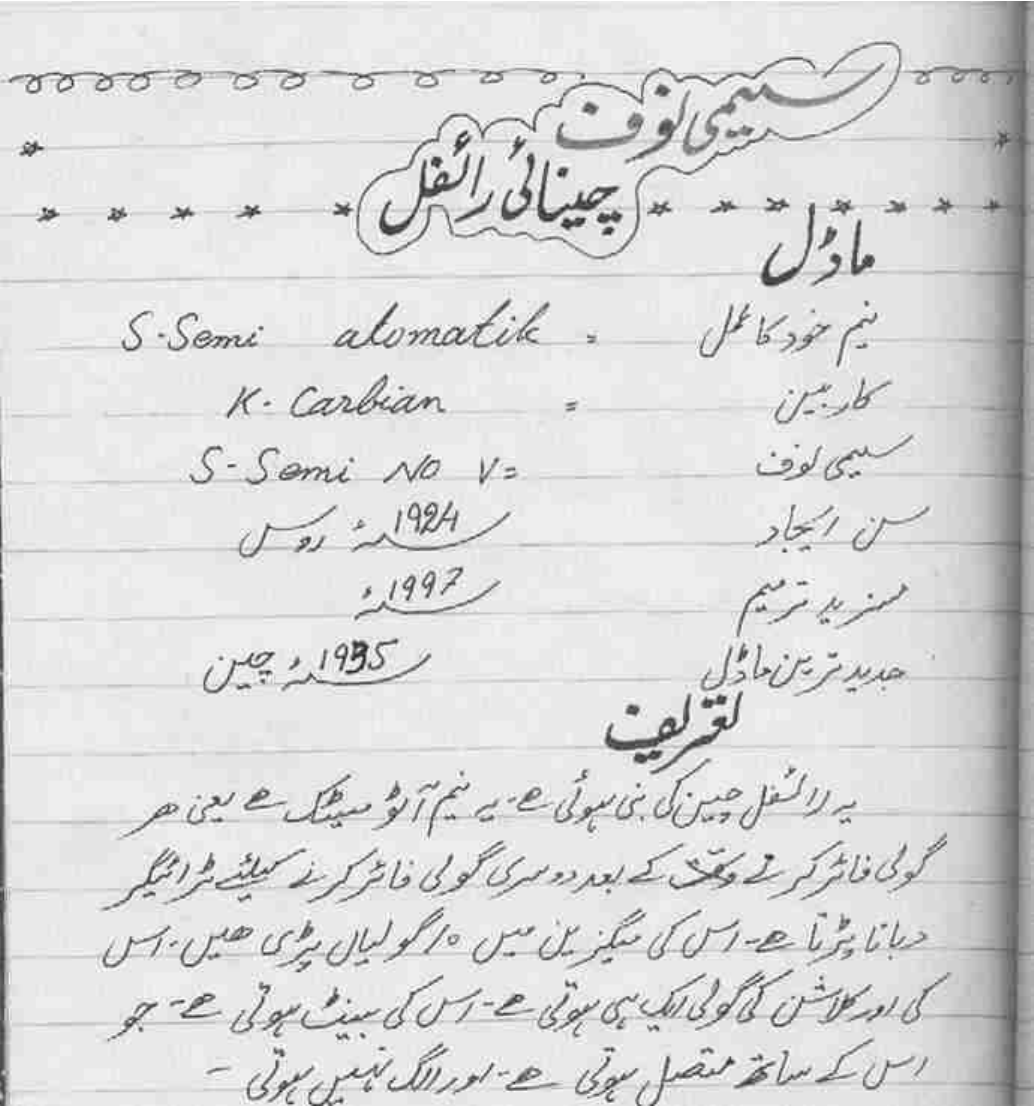 سیمی نوف
چینائی رائفل
ماڈل
نیم خود کا عمل = S-Semi atomatik
کاربین = K. Carbian
سیمی نوف S-Semi NO V=
سن ایجاد 1924ء روس
مزید ترمیم 1997ء
جدید ترین ماڈل 1935ء چین
تعریف
یہ رائفل چین کی بنی ہوئی ہے۔ یہ نیم آٹو میٹک ہے یعنی ھر
گولی فائر کرتے وقت کے بعد دوسری گولی فائر کرنے کیلئے ٹرائیگر
دبانا پڑتا ہے۔ اس کی میگزین میں ۱۰ گولیاں پڑی ھیں۔ اس
کی اور کلاشن کی گولی ایک ہی ہوتی ہے۔ اس کی بینٹ ہوتی ہے۔ جو
اس کے ساتھ متصل ہوتی ہے۔ اور الگ نہیں ہوتی ۔